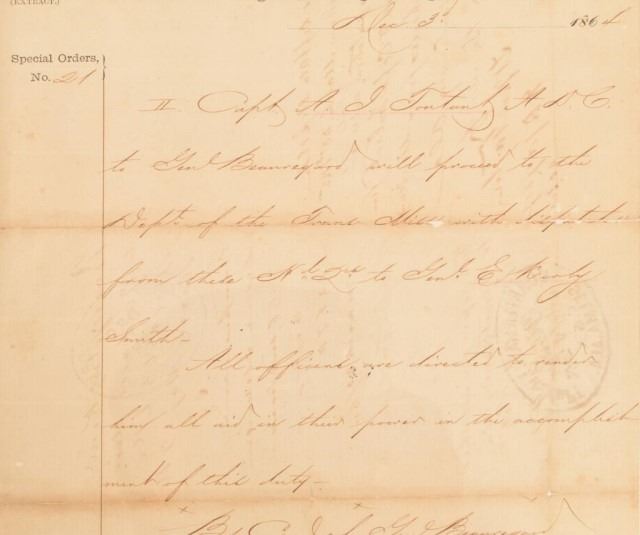 (EXTRACT.)
Dec 3d 1864
Special Orders,
No. 21
II Capt A. J. Toutant A. D. C.
to Genl Beauregard will proceed to the
Dept. of the Trans Miss. with dispatches
from these Hd Qrs to Genl. E. Kirby
Smith -
All officers are directed to render
him all aid in their power in the accomplish
ment of this duty -
By Genl Beauregard